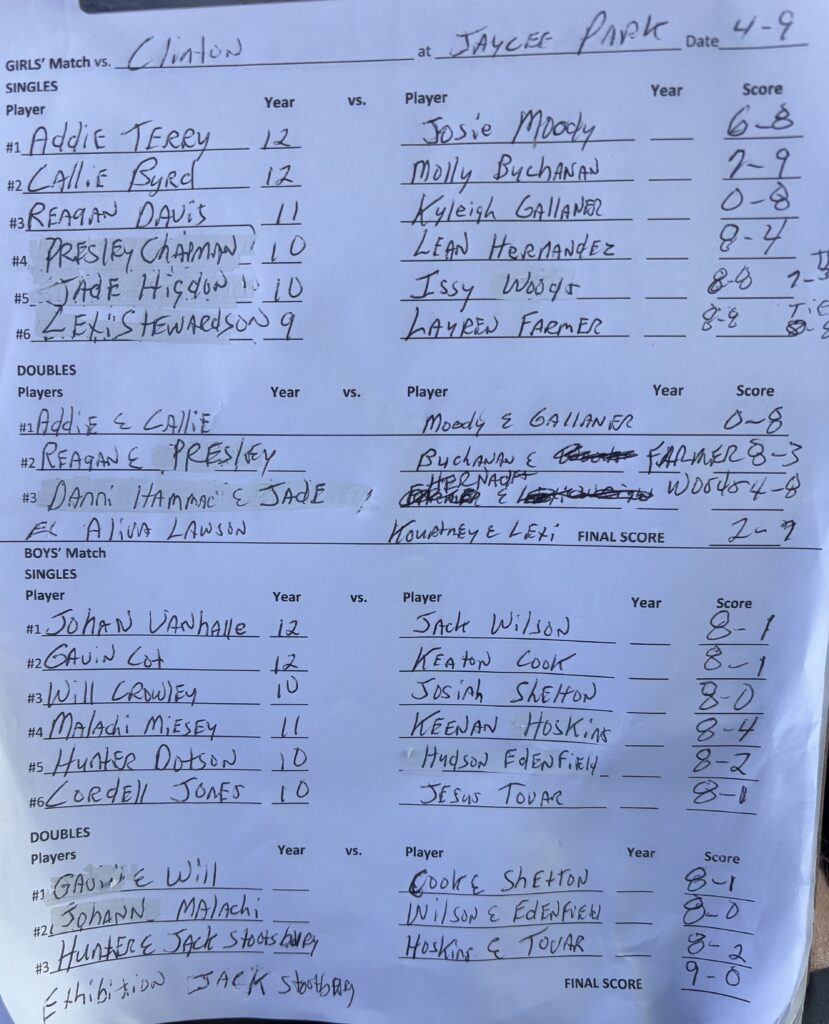 GIRLS' Match vs. Clinton at JAYCEE PARK Date 4-9
SINGLES
Player Year vs. Player Year Score
#1 Addie TERRY 12 Josie Moody 6-8
#2 CALLiE Byrd 12 Molly BuchANAN 7-9
#3 REAGAN DAVIS 11 Kyleigh GALLANER 0-8
#4 PRESLEY CHAPMAN 10 LEAN HERNANDEZ 8-4
#5 JADE Higdon 10 Issy Woods 8-8
#6 LExi STEWARDSON 9 LAUREN FARMER 8-8 TiE
DOUBLES
Players Year vs. Player Year Score
#1 Addie & CALLiE Moody & GALLANER 0-8
#2 REAGAN & PRESLEY BuchANAN & FARMER 8-3
#3 DANNi HAMMAC & JADE Woods 4-8
Ex ALivA LAWSON KOURTNEY & LExi FINAL SCORE 2-9
BOYS' Match
SINGLES
Player Year vs. Player Year Score
#1 JOHAN VANhAlle 12 JACk Wilson 8-1
#2 GAViN Cot 12 KEATON COOK 8-1
#3 Will CROWLEY 10 JOSiAh SHELTON 8-0
#4 MALAchi MiESEY 11 KEENAN HOSKiNS 8-4
#5 HUNTER DOTSON 10 HUdSON EdENFiEld 8-2
#6 CORdELL JONES 10 JESUS TOVAR 8-1
DOUBLES
Players Year vs. Player Year Score
#1 GAViN & Will COOK & SHELTON 8-1
#2 JOHANN MALAchi WilSON & EdENFiEld 8-0
#3 HUNTER & JACK Stootsbury HOSKiNS & TOVAR 8-2
Exhibition JACK Stootsbury FINAL SCORE 9-0